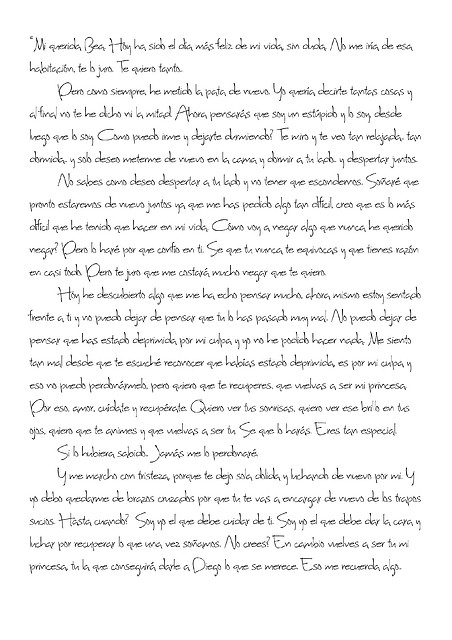 "Mi querida Bea. Hoy ha sido el día más feliz de mi vida, sin duda. No me iría de esa
habitación, te lo juro. Te quiero tanto.
Pero como siempre, he metido la pata de nuevo. Yo quería decirte tantas cosas y
al final no te he dicho ni la mitad. Ahora pensarás que soy un estúpido y lo soy, desde
luego que lo soy. Como puedo irme y dejarte durmiendo? Te miro y te veo tan relajada, tan
dormida, y solo deseo meterme de nuevo en la cama, y dormir a tu lado.. y despertar juntos.
No sabes como deseo despertar a tu lado y no tener que escondernos. Soñaré que
pronto estaremos de nuevo juntos ya que me has pedido algo tan difícil, creo que es lo más
difícil que he tenido que hacer en mi vida, Cómo voy a negar algo que nunca he querido
negar? Pero lo haré por que confío en ti. Se que tu nunca te equivocas y que tienes razón
en casi todo. Pero te juro que me costará mucho negar que te quiero.
Hoy he descubierto algo que me ha echo pensar mucho, ahora mismo estoy sentado
frente a ti y no puedo dejar de pensar que tu lo has pasado muy mal. No puedo dejar de
pensar que has estado deprimida por mi culpa y yo no he podido hacer nada, Me siento
tan mal desde que te escuché reconocer que habías estado deprimida, es por mi culpa y
eso no puedo perdonármelo, pero quiero que te recuperes, que vuelvas a ser mi princesa,
Por eso, amor, cuídate y recupérate. Quiero ver tus sonrisas, quiero ver ese brillo en tus
ojos, quiero que te animes y que vuelvas a ser tu. Se que lo harás. Eres tan especial.
Si lo hubiera sabido.. Jamás me lo perdonaré.
Y me marcho con tristeza, porque te dejo sola, dolida y luchando de nuevo por mi. Y
yo debo quedarme de brazos cruzados por que tu te vas a encargar de nuevo de los trapos
sucios. Hasta cuando? Soy yo el que debe cuidar de ti. Soy yo el que debe dar la cara y
luchar por recuperar lo que una vez soñamos. No crees? En cambio vuelves a ser tu mi
princesa, tu la que conseguirá darle a Diego lo que se merece. Eso me recuerda algo..